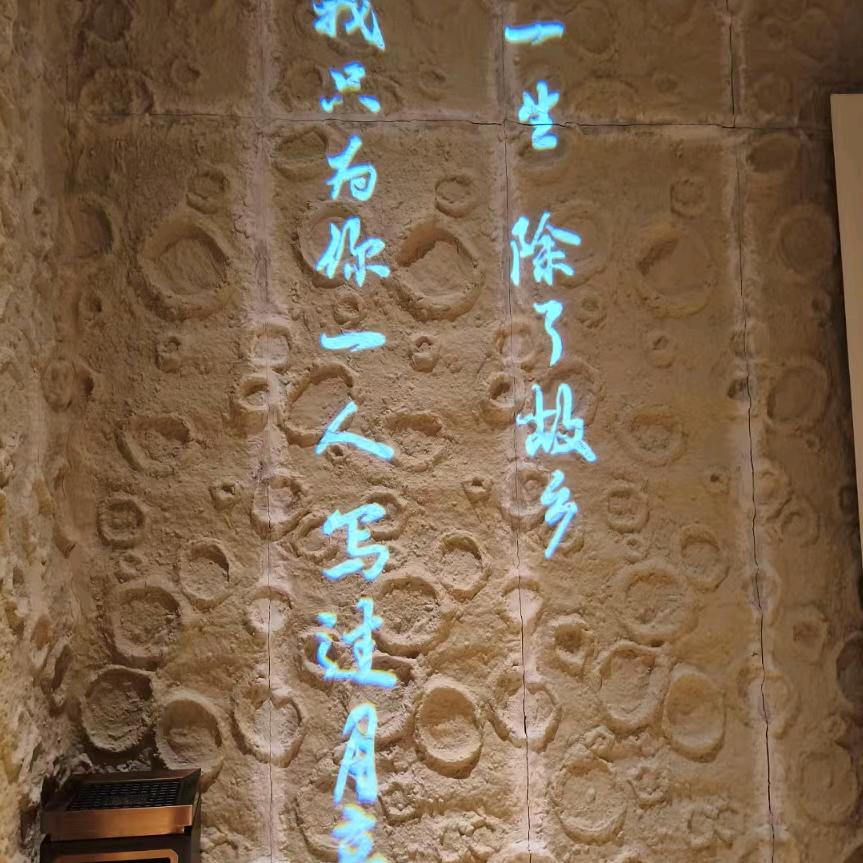 一生 除了故乡
我只为你一人写过月亮